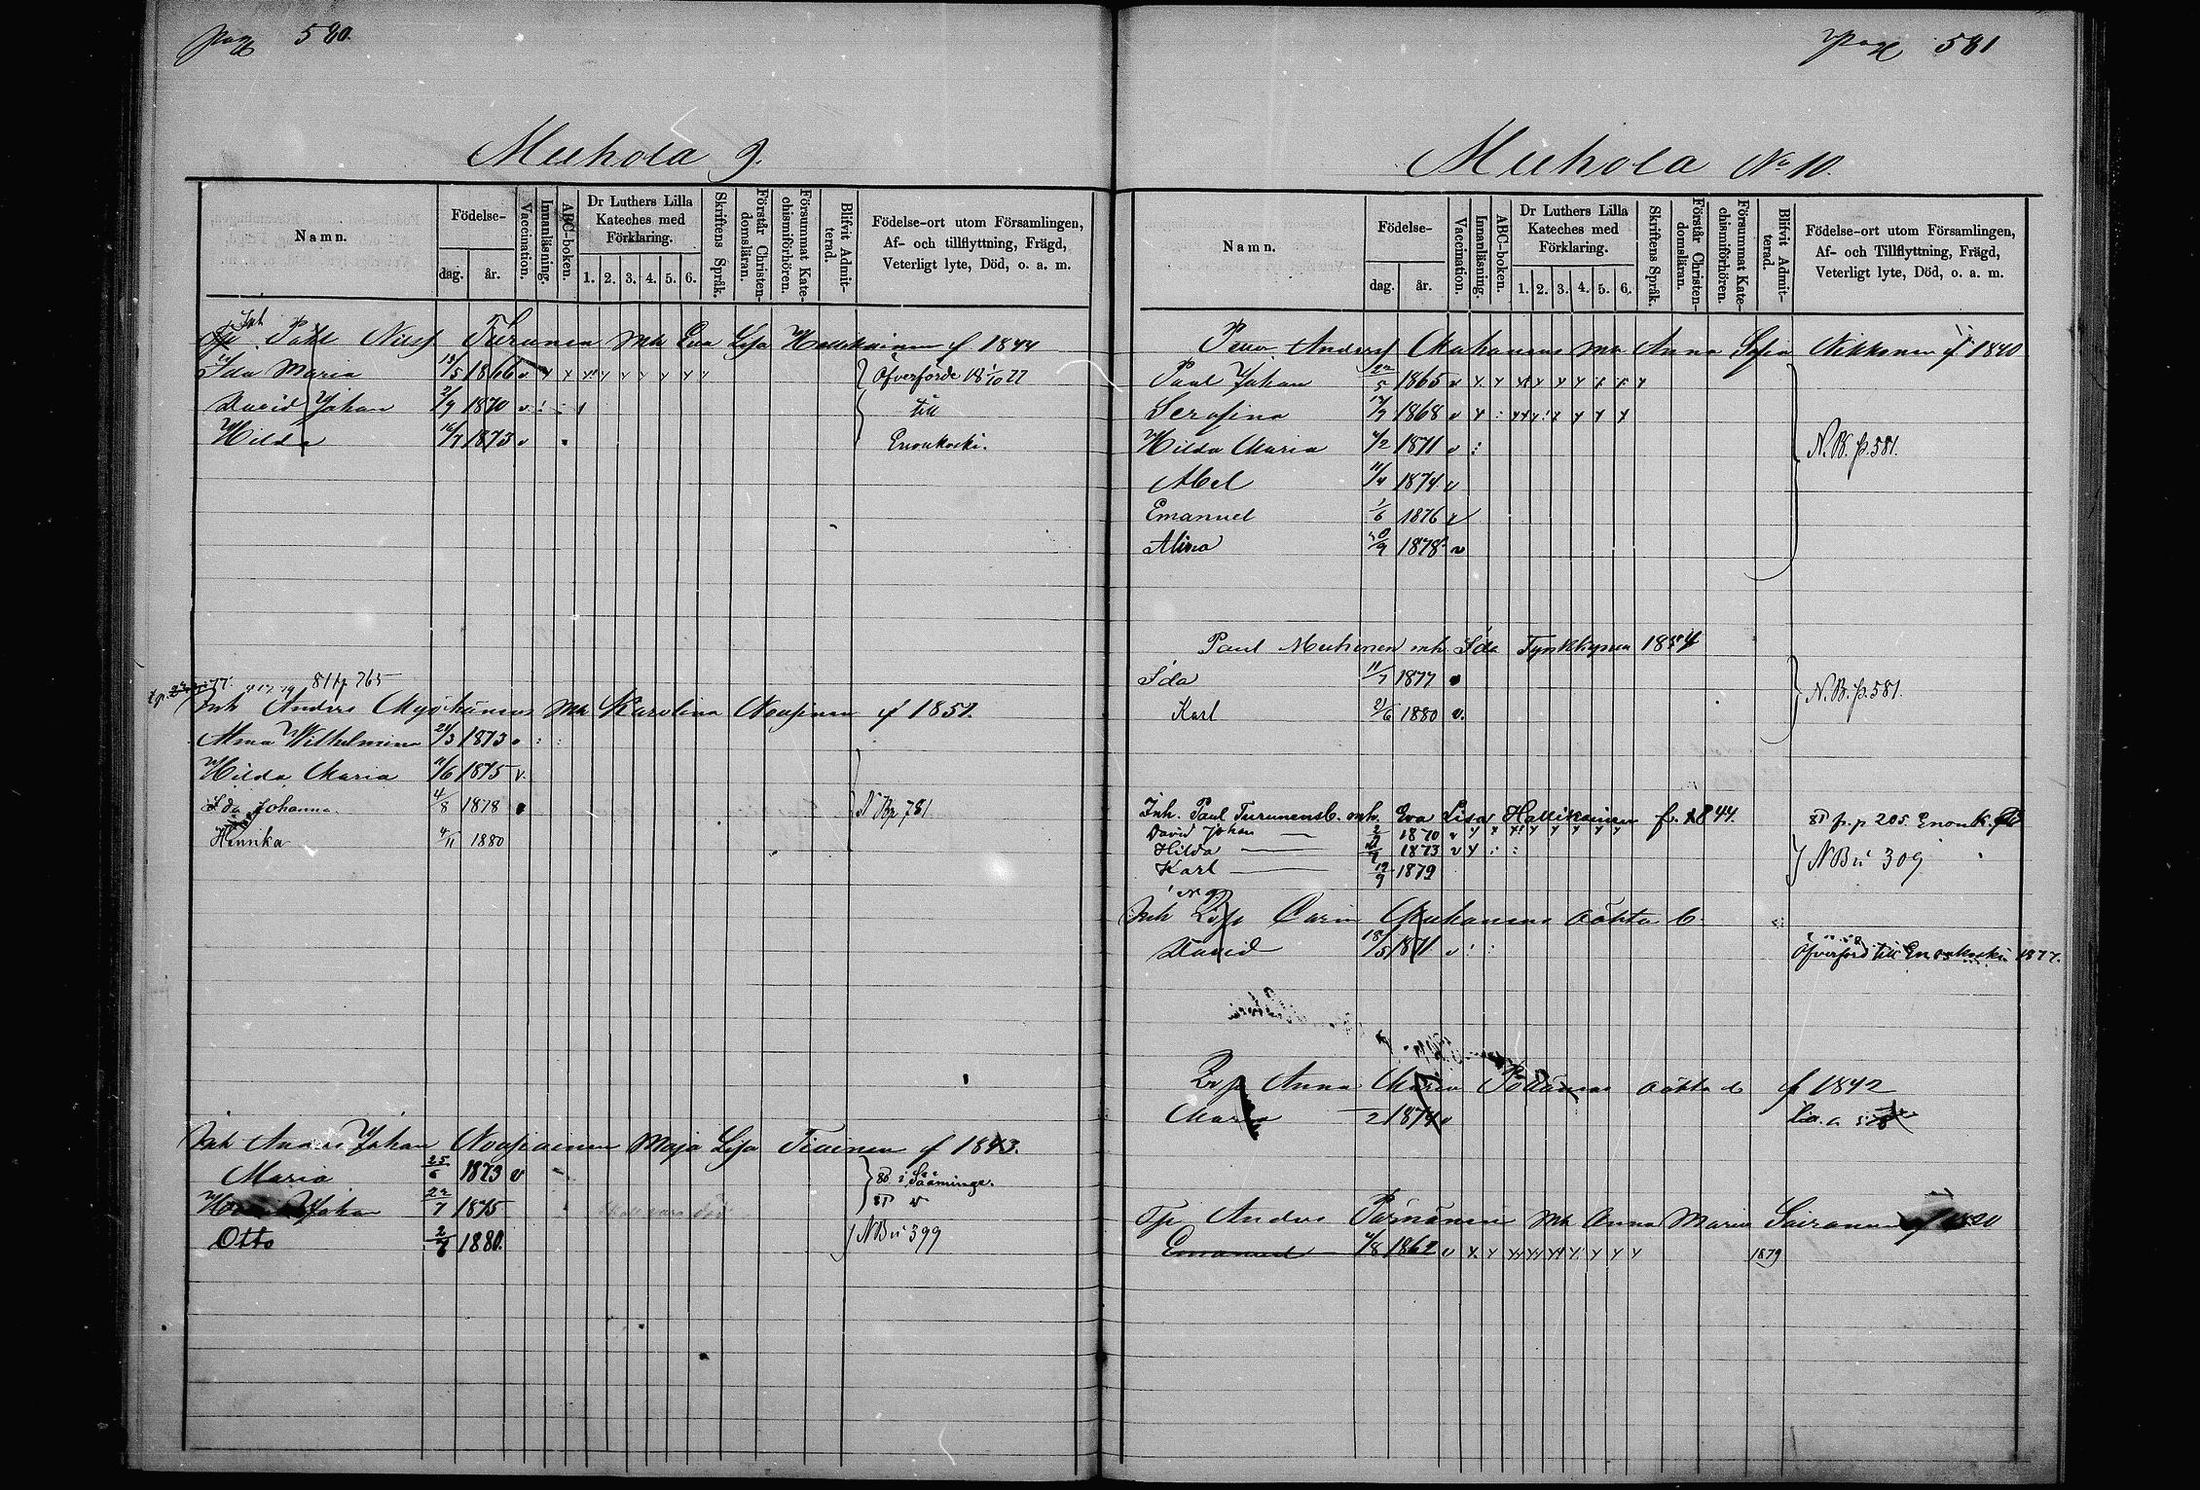 pag 580.
Muhola 9.
Namn.
Födelse-
dag. år.
Vaccination.
Innanläsning.
ABC-boken.
Dr Luthers Lilla
Kateches med
Förklaring.
1. 2. 3. 4. 5. 6.
Skriftens Språk.
Förstår Christen-
domsläran.
Försummat Kate-
chismiförhören.
Blifvit Admit-
terad.
Födelse-ort utom Församlingen,
Af- och tillflyttning, Frägd,
Veterligt lyte, Död, o. a. m.
Inh Påhl Nilss Turunen mh Eva Lisa Hallikainen f 1844
Ida Maria 13/5 1866 v Öfverförde 18 1/10 77
David Johan 2/9 1870 v till
Hilda 16/7 1873 v Enonkoski.
81 p 765
Inh Anders Myöhänen mh Karolina Nousinen f 1851.
Alma Wilhelmina 21/3 1873
Hilda Maria 11/6 1875 v.
Ida Johanna 4/8 1878
Henrika 4/11 1880
N Bp 781
Inh Anders Johan Nousiainen Maja Lisa Tiainen f 1843.
Maria 25/6 1873 v 80 i Sääminge.
Johan 22/7 1875
Otto 2/8 1880. NB ii 399
pag 581
Muhola No 10.
Namn.
Födelse-
dag. år.
Vaccination.
Innanläsning.
ABC-boken.
Dr Luthers Lilla
Kateches med
Förklaring.
1. 2. 3. 4. 5. 6.
Skriftens Språk.
Förstår Christen-
domsläran.
Försummat Kate-
chismiförhören.
Blifvit Admit-
terad.
Födelse-ort utom Församlingen,
Af- och Tillflyttning, Frägd,
Veterligt lyte, Död, o. a. m.
Anderss Muhonens mh Anna Sofia Nikkonen f 1840
Paul Johan 22/5 1865 v
Serafina 14/7 1868 v
Hilda Maria 4/2 1871 v N.B. p. 581.
Abel 11/4 1874 v
Emanuel 1/6 1876 v
Alina 20/9 1878 v
Paul Muhonen mh Ida Tynkkynen 1854
Ida 11/7 1877 N.B. p. 581.
Karl 21/6 1880 v.
Inh. Paul Turunens b. mh. Eva Lisa Hallikainen f. 1844. p. p 205. Enonk.
David Johan 2/9 1870 v
Hilda 1873 v NB ii 309
Karl 12/9 1879
Inh Lisa Carin Muhonens oäkta b.
David 18/5 1871 v Öfverförd till Enonkoski 1877.
Anna Maria Pöllänens oäkta b f 1842
Maria 2 1874 v
Anders Parnänen mh Anna Maria Sairanen f 1820
Emanuel 4/8 1862 v 1879